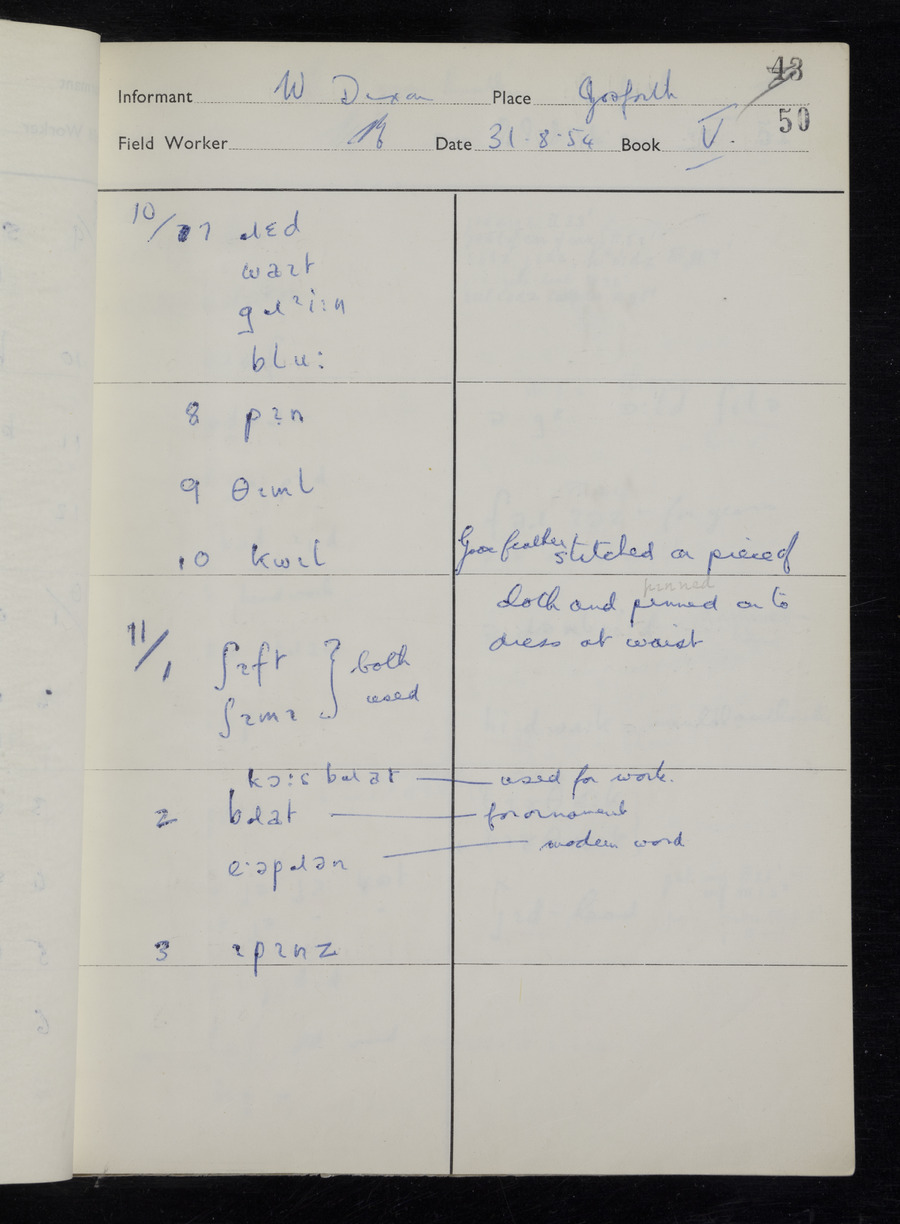 43
Informant W Dixon Place Gosforth
50
Field Worker Date 31-8-54 Book V.
10/7 ɹɛd
waɪt
gɹᵊi:n
blu:
8 pɪn
9 θɪml
10 kwɪl Goose feather stitched on piece of
pinned
cloth and pinned on to
dress at waist
11/1 ʃɪft } both
ʃɪmɪ } used
kɔ:s bɹat — used for work.
2 bɹat — for ornament
e·əpɹən — modern word
3 ɪpɪnz